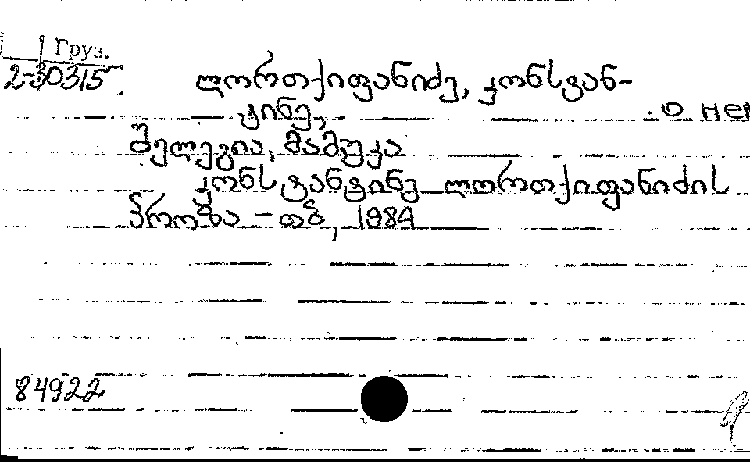 Груз.
2-30315
ლორთქიფანიძე, კონსტან-
ტინე,
о нем
შელეგია, მამუკა
კონსტანტინე ლორთქიფანიძის
პროზა – თბ, 1984
84922